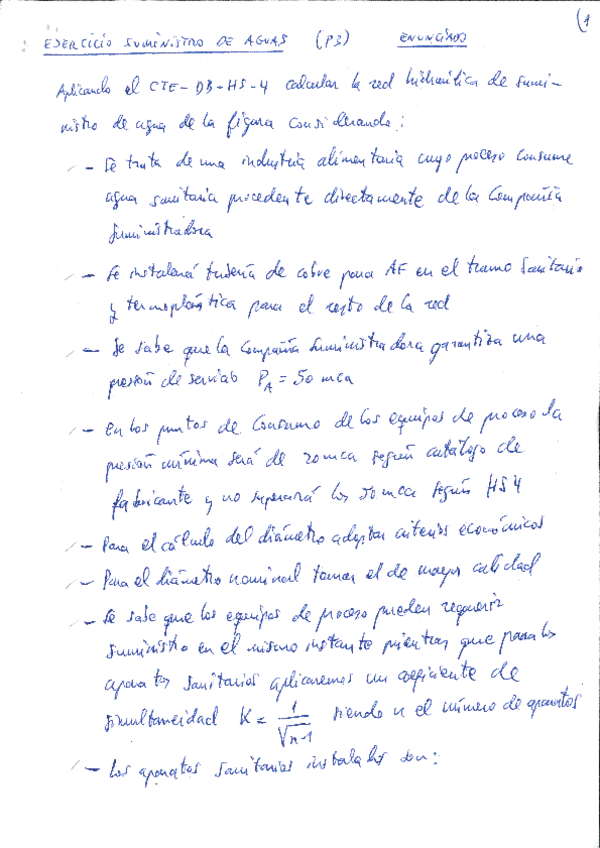 (1
EJERCICIO SUMINISTRO DE AGUAS (P3) ENUNCIADO
Aplicando el CTE-DB-HS-4 calcular la red hidraúlica de sumi-
nistro de agua de la figura considerando:
- Se trata de una industria alimentaria cuyo proceso consume
agua sanitaria procedente directamente de la Compañía
Suministradora
- Se instalará tubería de cobre para AF en el tramo sanitario
y termoplástica para el resto de la red
- Se sabe que la Compañía Suministradora garantiza una
presión de servicio PA = 50 mca
- En los puntos de consumo de los equipos de proceso la
presión mínima será de 20 mca según catálogo de
fabricante y no superará los 50 mca según HS4
- Para el cálculo del diámetro adoptar criterios económicos
- Para el diámetro nominal tomar el de mayor calidad
- Se sabe que los equipos de proceso pueden requerir
suministro en el mismo instante mientras que para los
aparatos sanitarios aplicaremos un coeficiente de
simultaneidad K = 1/√n-1 siendo n el número de aparatos
- Los aparatos sanitarios instalados son: